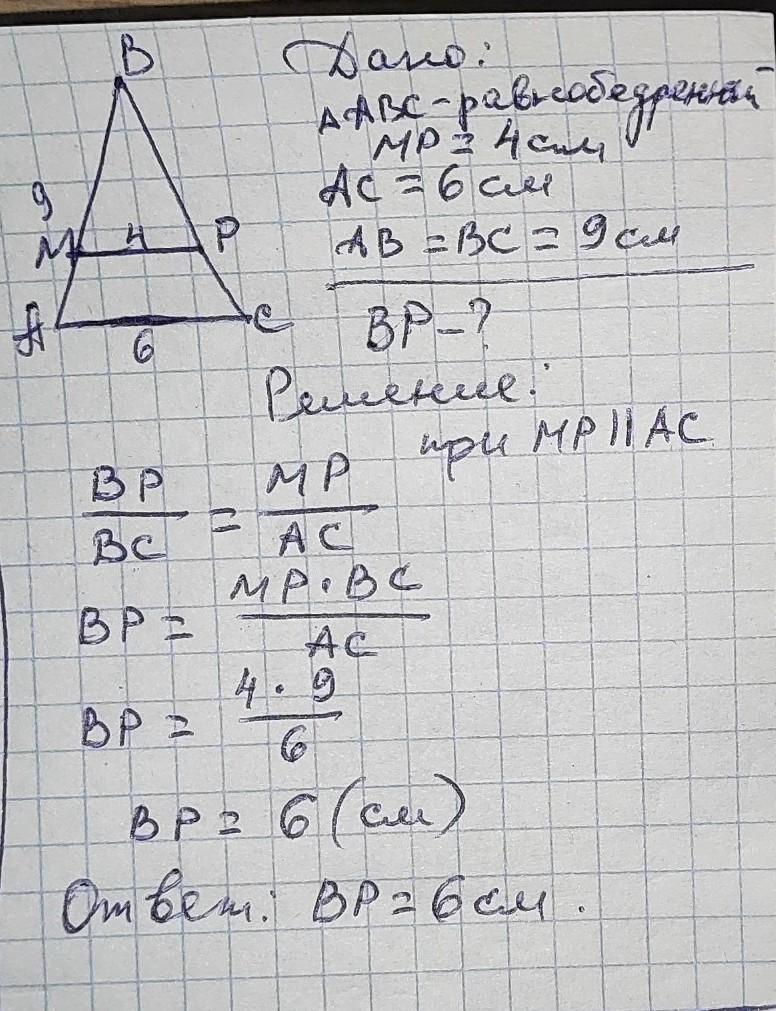 B
9
M 4 P
A 6 C
Дано:
△ABC - равнобедренный
MP = 4 см
AC = 6 см
AB = BC = 9 см
BP - ?
Решение:
при MP || AC
BP/BC = MP/AC
BP = MP · BC/AC
BP = 4 · 9/6
BP = 6 (см)
Ответ: BP = 6 см.